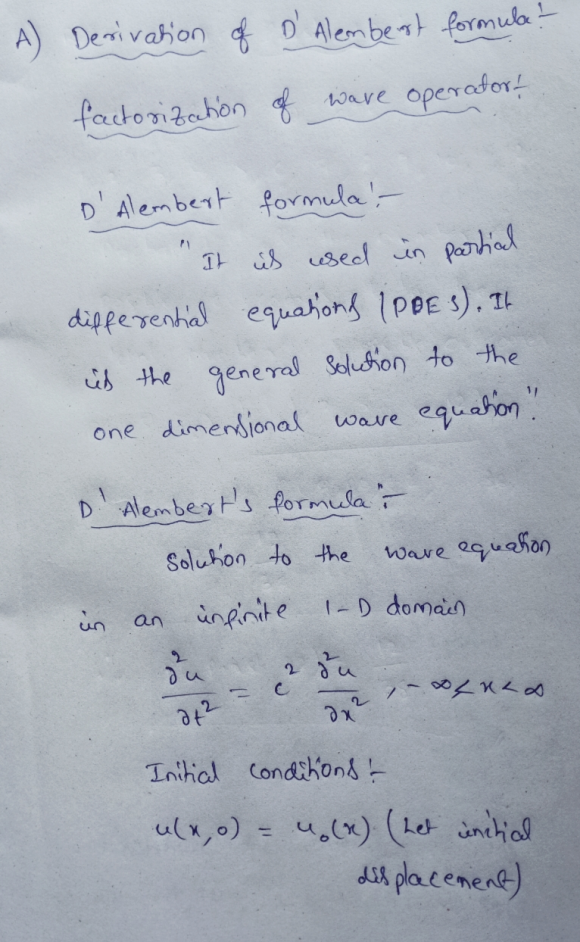 A) Derivation of D'Alembert formula:-
factorization of wave operator:-
D'Alembert formula:-
"It is used in partial
differential equations (PDES). It
is the general solution to the
one dimensional wave equation".
D'Alembert's formula:-
Solution to the wave equation
in an infinite 1-D domain
∂²u/∂t² = c² ∂²u/∂x² , -∞<x<∞
Initial conditions:-
u(x,0) = u₀(x) (Let initial
displacement)